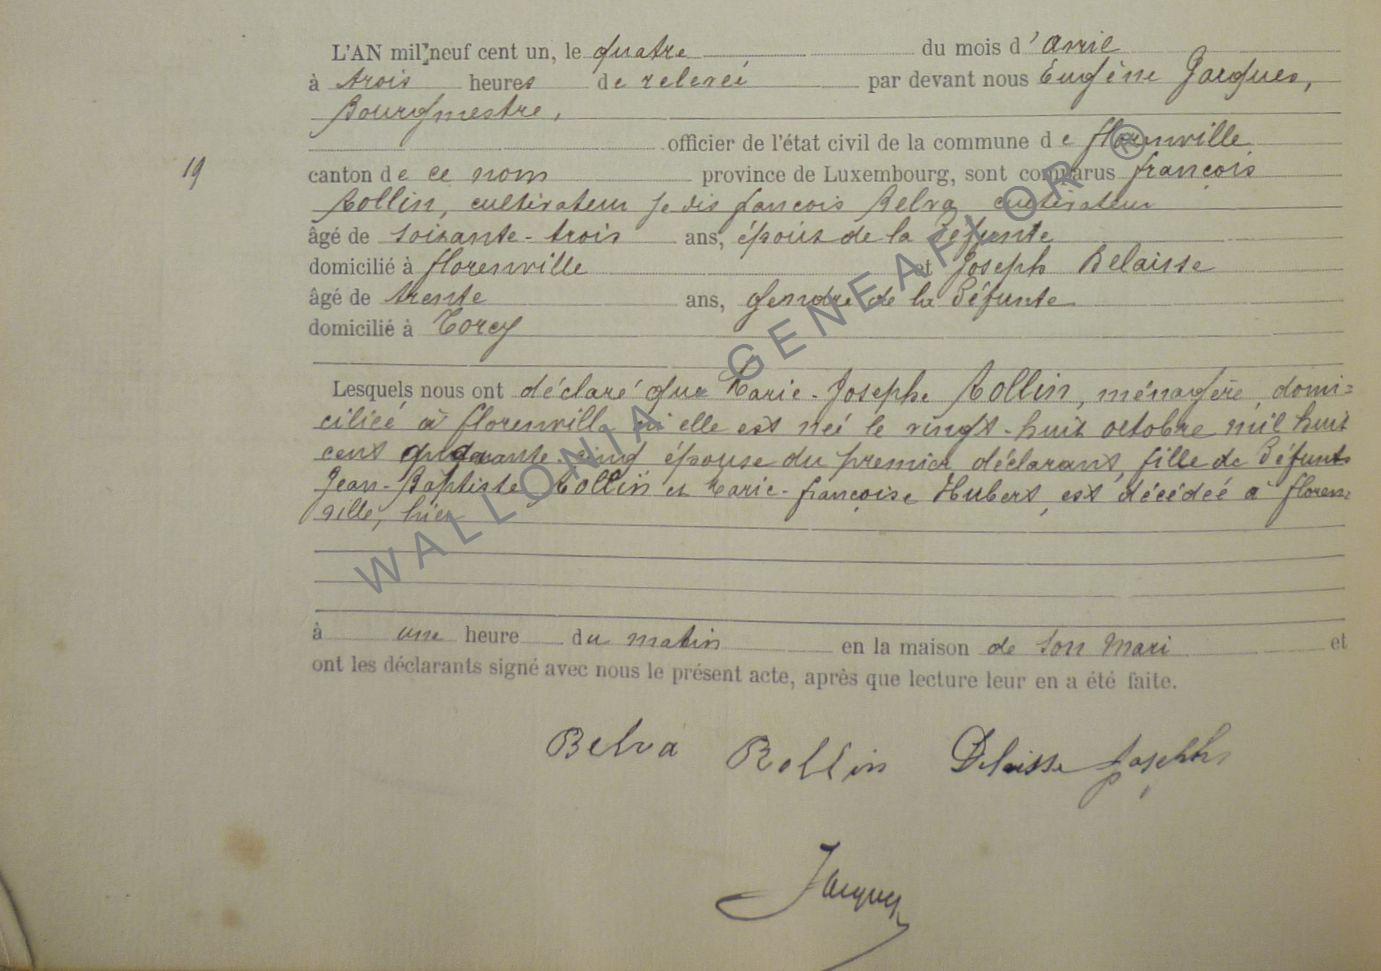 L'AN mil neuf cent un, le quatre du mois d'avril
à trois heures de relevée par devant nous Eugène Jacques,
Bourgmestre,
officier de l'état civil de la commune de florenville
19
canton de ce nom province de Luxembourg, sont comparus françois
Rollin, cultivateur je dis françois Belva cultivateur
âgé de soixante-trois ans, époux de la défunte
domicilié à florenville et Joseph Delaisse
âgé de trente ans, gendre de la défunte
domicilié à Torcy
Lesquels nous ont déclaré que Marie-Josephe Rollin, ménagère, domi=
ciliée à florenville, où elle est née le vingt-huit octobre mil huit
cent quarante-cinq épouse du premier déclarant, fille de défunts
Jean-Baptiste Rollin et Marie-françoise Hubert, est décédée à floren-
ville, hier
à une heure du matin en la maison de son mari et
ont les déclarants signé avec nous le présent acte, après que lecture leur en a été faite.
Belva Rollin Delaisse Joseph
Jacques
WALLONIA GENEAFLOR ®